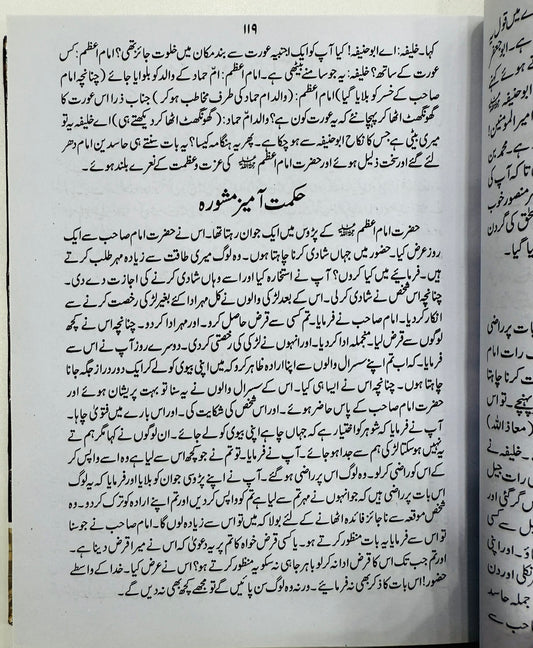 ۱۱۹
کہا۔ خلیفہ: اے ابوحنیفہ! کیا آپ کو ایک اجنبیہ عورت سے بند مکان میں خلوت جائز تھی؟ امام اعظم: کس
عورت کے ساتھ؟ خلیفہ: یہ جو سامنے بیٹھی ہے۔ امام اعظم: اُمّ حماد کے والد کو بلوایا جائے (چنانچہ امام
صاحب کے خسر کو بلایا گیا) امام اعظم: (والد ام حماد کی طرف مخاطب ہو کر) جناب ذرا اس عورت کا
گھونگھٹ اٹھا کر پہچانئے کہ یہ عورت کون ہے؟ والد اُمّ حماد: (گھونگھٹ اٹھا کر دیکھتے ہی) اے خلیفہ یہ تو
میری بیٹی ہے جس کا نکاح ابوحنیفہ سے ہو چکا ہے۔ پھر یہ ہنگامہ کیسا؟ یہ بات سنتے ہی حاسدین امام دھر
لئے گئے اور سخت ذلیل ہوئے اور حضرت امام اعظم کی عزت و عظمت کے نعرے بلند ہوئے۔
حکمت آمیز مشورہ
حضرت امام اعظم کے پڑوس میں ایک جوان رہتا تھا۔ اس نے حضرت امام صاحب سے ایک
روز عرض کیا۔ حضور میں جہاں شادی کرنا چاہتا ہوں۔ وہ لوگ میری طاقت سے زیادہ مہر طلب کرتے
ہیں۔ فرمائیے میں کیا کروں؟ آپ نے استخارہ کیا اور اسے وہاں شادی کرنے کی اجازت دے دی۔
چنانچہ اس شخص نے شادی کرلی۔ اس کے بعد لڑکی والوں نے کل مہر ادا کئے بغیر لڑکی رخصت کرنے سے
انکار کر دیا۔ امام صاحب نے فرمایا۔ تم کسی سے قرض حاصل کرو۔ اور مہر ادا کر دو۔ چنانچہ اس نے کچھ
لوگوں سے قرض لیا۔ منجملہ ادا کر دیا۔ اور انہوں نے لڑکی کی رخصتی کر دی۔ دوسرے روز آپ نے اس سے
فرمایا۔ کہ اب تم اپنے سسرال والوں سے اپنا ارادہ ظاہر کرو کہ میں اپنی بیوی کو لے کر ایک دور دراز جگہ جانا
چاہتا ہوں۔ چنانچہ اس نے ایسا ہی کیا۔ اس کے سسرال والوں نے یہ سنا تو بہت پریشان ہوئے اور
حضرت امام صاحب کے پاس حاضر ہوئے۔ اور اس شخص کی شکایت کی۔ اور اس بارے میں فتویٰ چاہا۔
آپ نے فرمایا کہ شوہر کو اختیار ہے کہ جہاں چاہے اپنی بیوی کو لے جائے۔ ان لوگوں نے کہا مگر ہم تے
یہ نہیں ہوسکتا لڑکی ہم سے جدا ہو جائے۔ آپ نے فرمایا۔ تو تم نے جو کچھ اس سے لیا ہے وہ اسے واپس کر
کے اس کو راضی کر لو۔ وہ لوگ اس پر راضی ہو گئے۔ آپ نے اپنے پڑوسی جوان کو بلایا اور فرمایا کہ یہ لوگ
اس بات پر راضی ہیں کہ جو انہوں نے مہر تم سے لیا ہے تم کو واپس کر دیں اور تم اپنے ارادہ کو ترک کر دو۔ وہ
شخص موقعہ سے ناجائز فائدہ اٹھانے کے لئے بولا کہ میں تو اس سے زیادہ لوں گا۔ امام صاحب نے جو سنا
تو اس سے فرمایا یہ بات منظور کرتے ہو۔ یا کسی قرض خواہ کا تم پر یہ دعویٰ کہ اس نے میرا قرض دینا ہے۔
اور تم جب تک اس کا قرض ادا نہ کر لو باہر جا ہی نہ سکو یہ منظور کرتے ہو؟ اس نے عرض کیا۔ خدا کے واسطے
حضور! اس بات کا ذکر بھی نہ فرمائیے۔ ورنہ وہ لوگ سن پائیں گے تو مجھے کچھ بھی نہ دیں گے۔